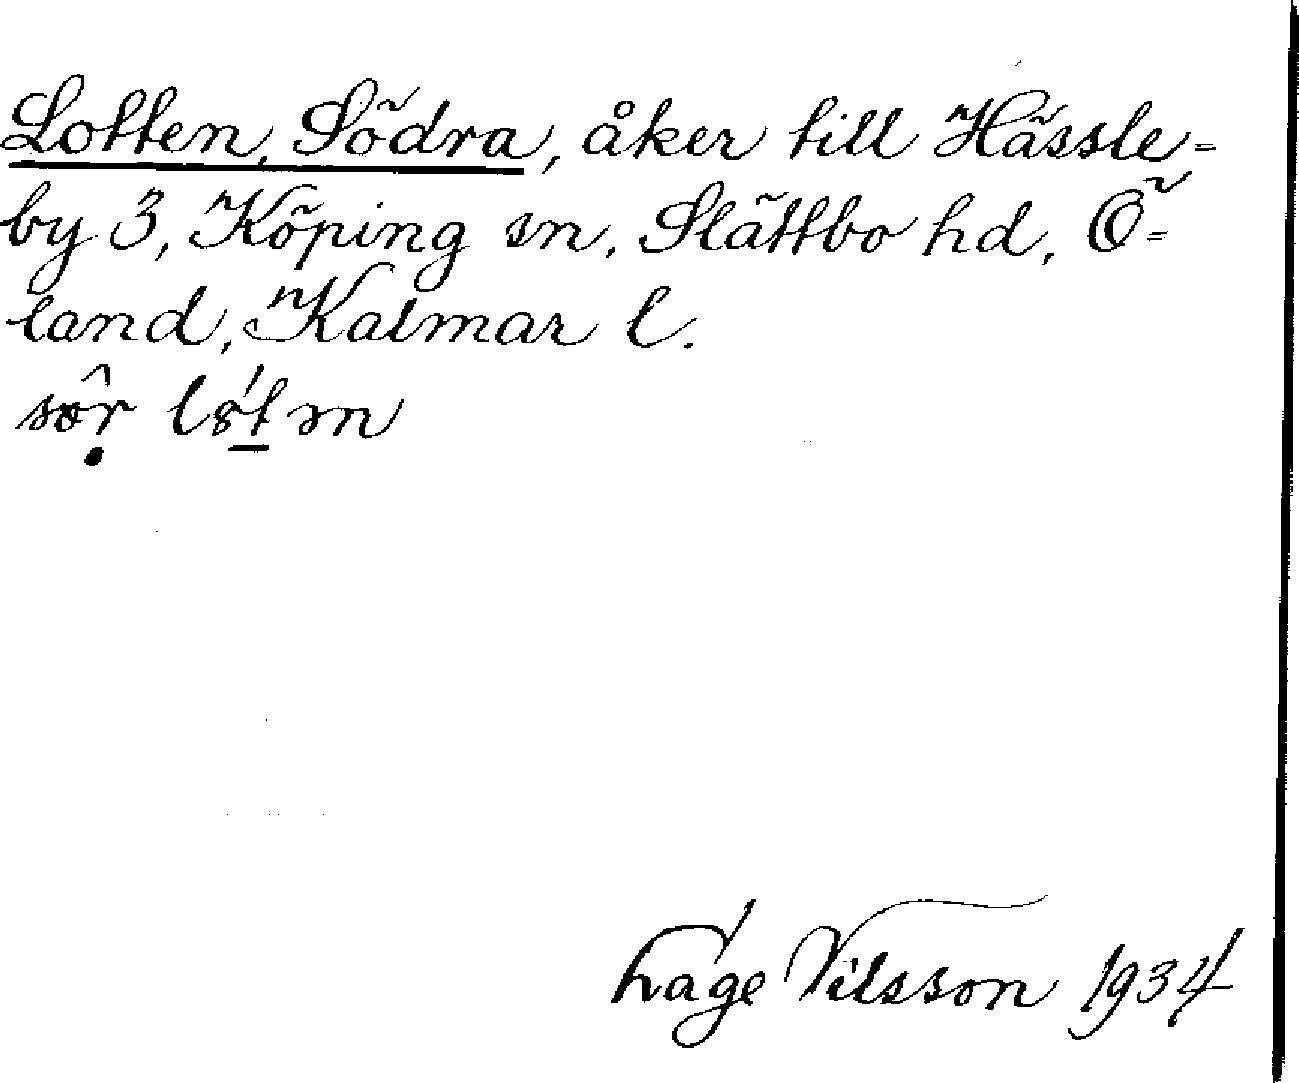 Lotten, Södra, åker till Hässle-
by 3, Köping sn, Slättbo hd, Ö-
land, Kalmar l.
Låge Nilsson 1934